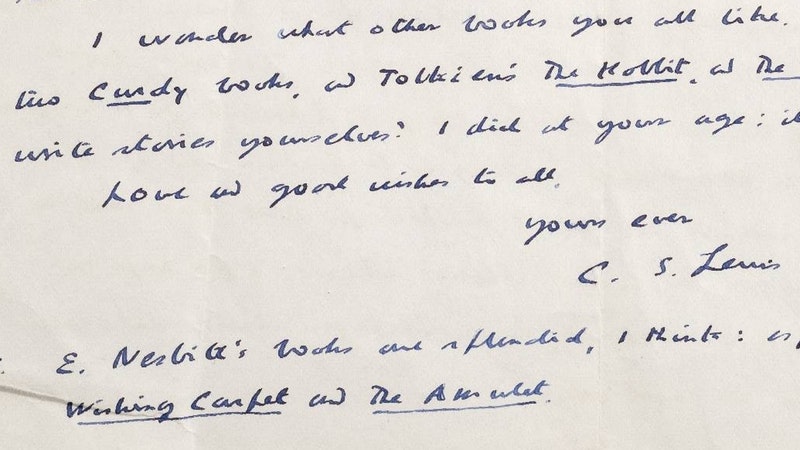 I wonder what other books you all like.
two Curdy books, and Tolkien's The Hobbit, and The
write stories yourselves? I did at your age: it
Love and good wishes to all.
yours ever
C. S. Lewis
E. Nesbitt's books are splendid, I think: esp
Wishing Carpet and The Amulet.